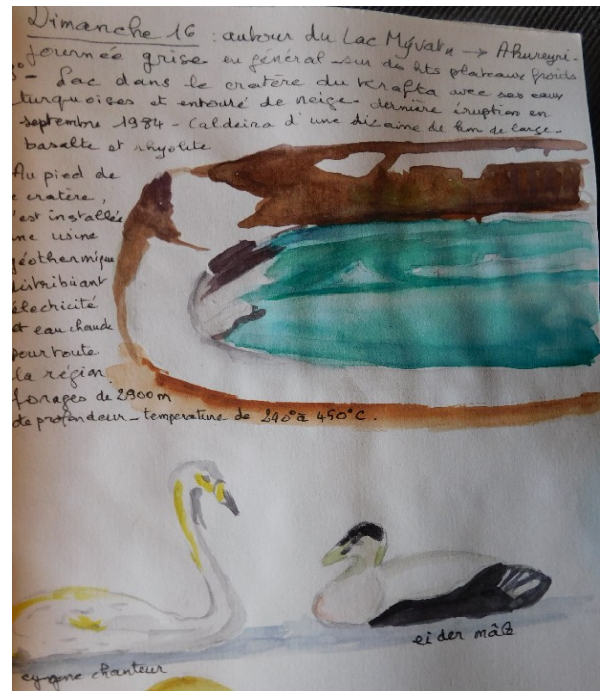 Dimanche 16 : autour du Lac Mývatn → Akureyri.
Journée grise en général - sur des hts plateaux froids
- Lac dans le cratère du Krafla avec ses eaux
turquoises et entouré de neige - dernière éruption en
septembre 1984 - Caldeira d'une dizaine de km de large -
basalte et rhyolite
Au pied de
cratère,
'est installée
ne usine
géothermique
distribuant
électricité
et eau chaude
pour toute
la région.
forages de 2900 m
de profondeur - température de 240° à 450°C.
cygne chanteur
eider mâle